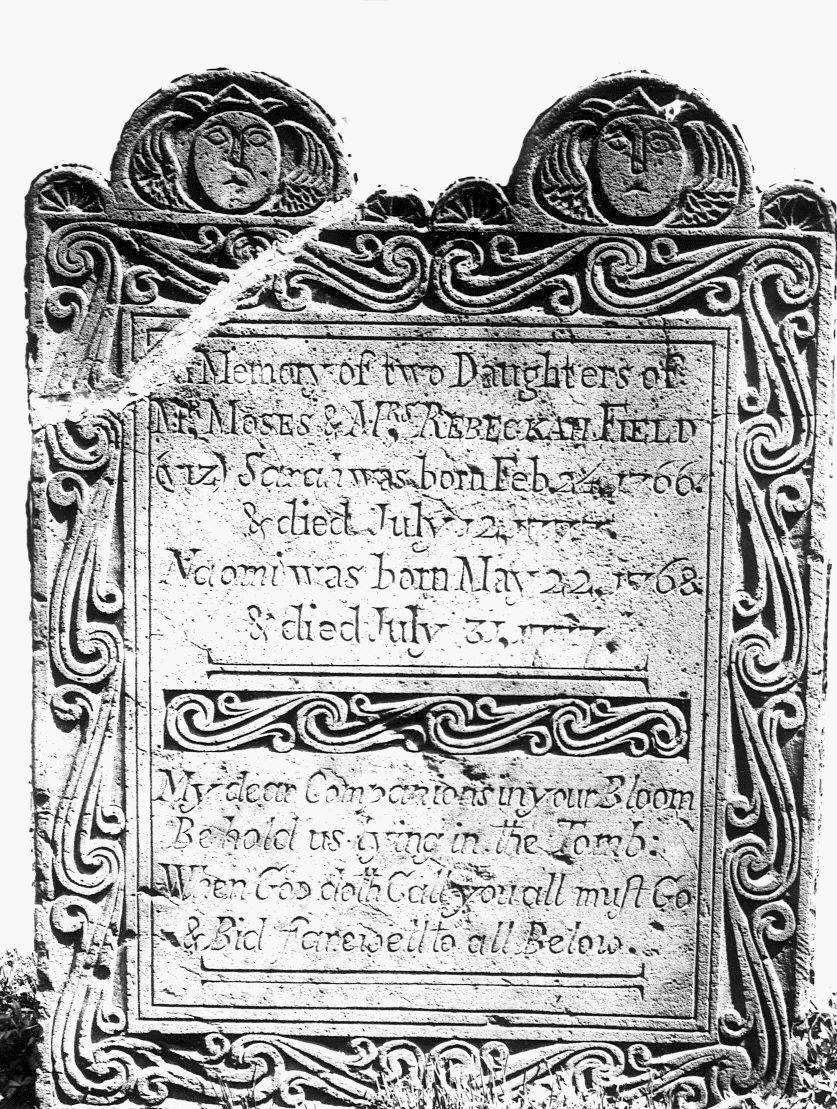 Memory of two Daughters of
Mr. MOSES & Mrs. REBECKAH FIELD
(viz) Sarah was born Feb. 24, 1766.
& died July 12, 1777.
Naomi was born May 22, 1768
& died July 31, 1777.
My dear Companions in your Bloom
Behold us lying in the Tomb:
When GOD doth Call you all muſt Go
& Bid farewell to all Below.